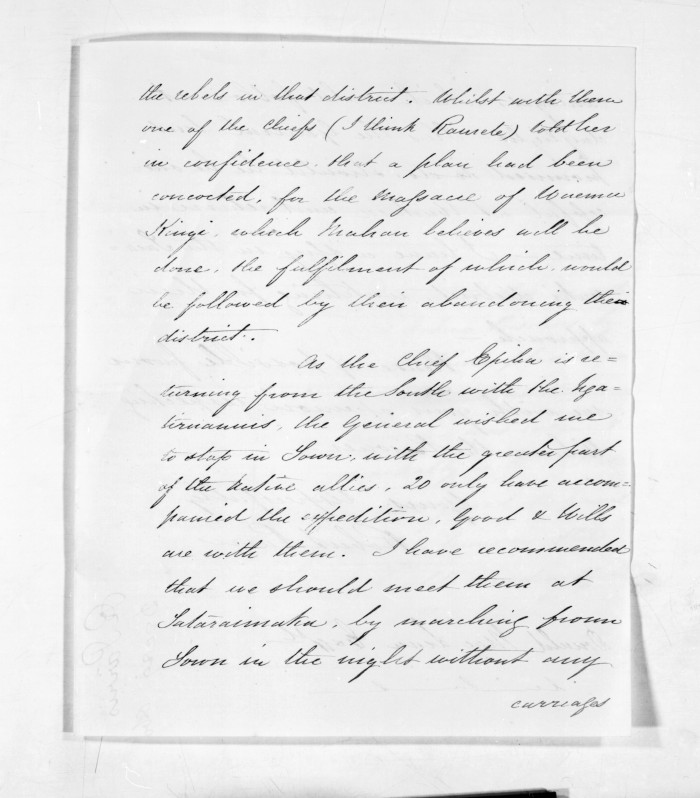 the rebels in that district. Whilst with them
one of the Chiefs (I think Raurete) told her
in confidence that a plan had been
concocted, for the Massacre of
Kingi, which Mahau believes will be
done, the fulfilment of which would
be followed by their abandoning the
district.
As the Chief Epiha is re=
turning from the South with the Nga=
, the General wished me
to stop in Town, with the greater part
of the Native allies, 20 only have accom=
panied the expedition, Good & Wills
are with them. I have recommended
that we should meet them at
Tataraimaka, by marching from
Town in the night without any
carriages